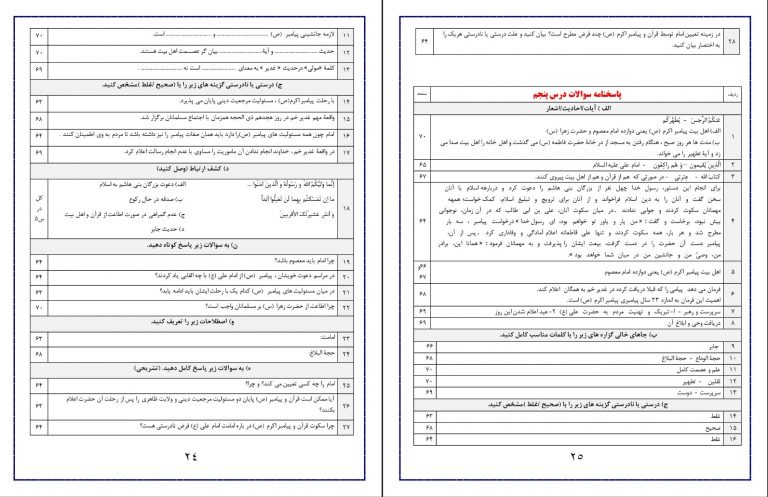 ۱۱ لازمه جانشینی پیامبر (ص) .................... و .................... است. ۷۰
۱۲ حدیث .................... و آیة .................... بیان گر عصمت اهل بیت هستند. ۷۰
۱۳ کلمة «مولی» در حدیث « غدیر » به معنای .................... است نه .................... ۶۹
ج) درستی یا نادرستی گزینه های زیر را با (صحیح /غلط )مشخص کنید.
۱۴ با رحلت پیامبر اکرم(ص) ، مسئولیت مرجعیت دینی پایان می پذیرد. ۶۳
۱۵ واقعة مهم غدیر خم در روز هجدهم ذی الحجه همزمان با اجتماع مسلمانان برگزار شد. ۶۸
۱۶ امام چون همه مسئولیت های پیامبر (ص)را دارد باید همان صفات پیامبر را نیز داشته باشد تا مردم به وی اطمینان کنند . ۶۴
۱۷ در واقعة غدیر خم ، خداوند انجام ندادن آن ماموریت را مساوی با عدم انجام رسالت اعلام کرد. ۶۹
د) کشف ارتباط (وصل کنید)
۱۸ إنَّما وَلیُّکُمُ اللهُ وَ رَسُولُهُ وَ الَّذینَ آمَنُوا ... الف) دعوت بزرگان بنی هاشم به اسلام
ما إن تَمَسَّکتُم بِهِما لَن تَضِلّوا اَبَداً ب) صدقه در حال رکوع
وَ أنذِر عَشیرَتَکَ الأقرَبینَ ج) عدم گمراهی در صورت اطاعت از قرآن و اهل بیت
د) حدیث جابر
کل در س۵
ن) به سوالات زیر پاسخ کوتاه دهید.
۱۹ چرا امام باید معصوم باشد؟ ۶۴
۲۰ در مراسم دعوت خویشان ، پیامبر (ص)از امام علی (ع) با چه القابی یاد کردند؟ ۶۴
۲۱ در میان مسئولیت های پیامبر (ص) کدام یک با رحلت ایشان باید ادامه یابد؟ ۶۳
۲۲ چرا اطاعت از حضرت زهرا (س) بر مسلمانان واجب است؟ ۷۰
و) اصطلاحات زیر را تعریف کنید.
۲۳ امامت: ۶۳
۲۴ حجة البلاغ: ۶۸
ه) به سوالات زیر پاسخ کامل دهید. (تشریحی)
۲۵ امام را چه کسی تعیین می کند؟ و چرا؟ ۶۴
۲۶ آیا ممکن است قرآن و پیامبر (ص) پایان دو مسئولیت مرجعیت دینی و ولایت ظاهری را پس از رحلت آن حضرت اعلام
بکنند؟ ۶۳
۲۷ چرا سکوت قرآن و پیامبر اکرم (ص) در باره امامت امام علی (ع) فرض نادرستی هست؟ ۶۴
۲۴
۲۸ در زمینه تعیین امام توسط قرآن و پیامبر اکرم (ص) چند فرض مطرح است؟ بیان کنید و علت درستی یا نادرستی هریک را
به اختصار بیان کنید. ۶۴
ردیف پاسخنامه سوالات درس پنجم صفحه
الف ) آیات/احادیث/اشعار
۱ عَنکُمُ الرِّجسَ - یُطَهِّرَکُم
الف)اهل بیت پیامبر اکرم (ص) یعنی دوازده امام معصوم و حضرت زهرا (س)
ب) مدت ها هر روز صبح ، هنگام رفتن به مسجد از در خانة حضرت فاطمه (س) می گذشت و اهل خانه را اهل بیت صدا می
زد و آیة تطهیر را می خواند. ۷۰
۲ الَّذینَ یُقیمونَ - وَ هُم راکِعُونَ - امام علی علیه السلام ۶۵
۳ کتاب الله - عترتی - در صورتی که هم از قرآن و هم از اهل بیت پیروی کنند. ۶۷
۴ برای انجام این دستور، رسول خدا چهل نفر از بزرگان بنی هاشم را دعوت کرد و درباره اسلام با آنان
سخن گفت و آنان را به دین اسلام فراخواند و از آنان برای ترویج و تبلیغ اسلام، کمک خواست؛ همه
مهمانان سکوت کردند و جوابی ندادند . در میان سکوت آنان، علی بن ابی طالب که در آن زمان، نوجوانی
بیش نبود، برخاست و گفت: « من یار و یاور تو خواهم بود، ای رسول خدا.» درخواست پیامبر ، سه بار
مطرح شد و هر بار، همه سکوت کردند و تنها علی قاطعانه اعلام آمادگی و وفاداری کرد . پس از آن،
پیامبر دست آن حضرت را در دست گرفت، بیعت ایشان را پذیرفت و به مهمانان فرمود: « همانا این، برادر
من، وصیّ من و جانشین من در میان شما خواهد بود ». ۶۴
۵ اهل بیت پیامبر اکرم (ص) یعنی دوازده امام معصوم ۶۶و ۶۷
۶ فرمان می دهد پیامی را که قبلا دریافت کرده در غدیر خم به همگان اعلام کند.
اهمیت این فرمان به اندازه ۲۳ سال پیامبری پیامبر اکرم (ص) است. ۶۸
۷ سرپرست و رهبر - ۱- تبریک و تهنیت مردم به حضرت علی (ع) ۲-عید اعلام شدن این روز ۶۹
۸ دریافت وحی و ابلاغ آن ۶۹
ب) جاهای خالی گزاره های زیر را با کلمات مناسب کامل کنید.
۹ جابر ۶۶
۱۰ حجة الوداع - حجة البلاغ ۶۸
۱۱ علم و عصمت کامل ۷۰
۱۲ ثقلین - تطهیر ۷۰
۱۳ سرپرست - دوست ۶۹
ج) درستی یا نادرستی گزینه های زیر را با (صحیح /غلط )مشخص کنید.
۱۴ غلط ۶۳
۱۵ صحیح ۶۸
۱۶ غلط ۶۴
۲۵